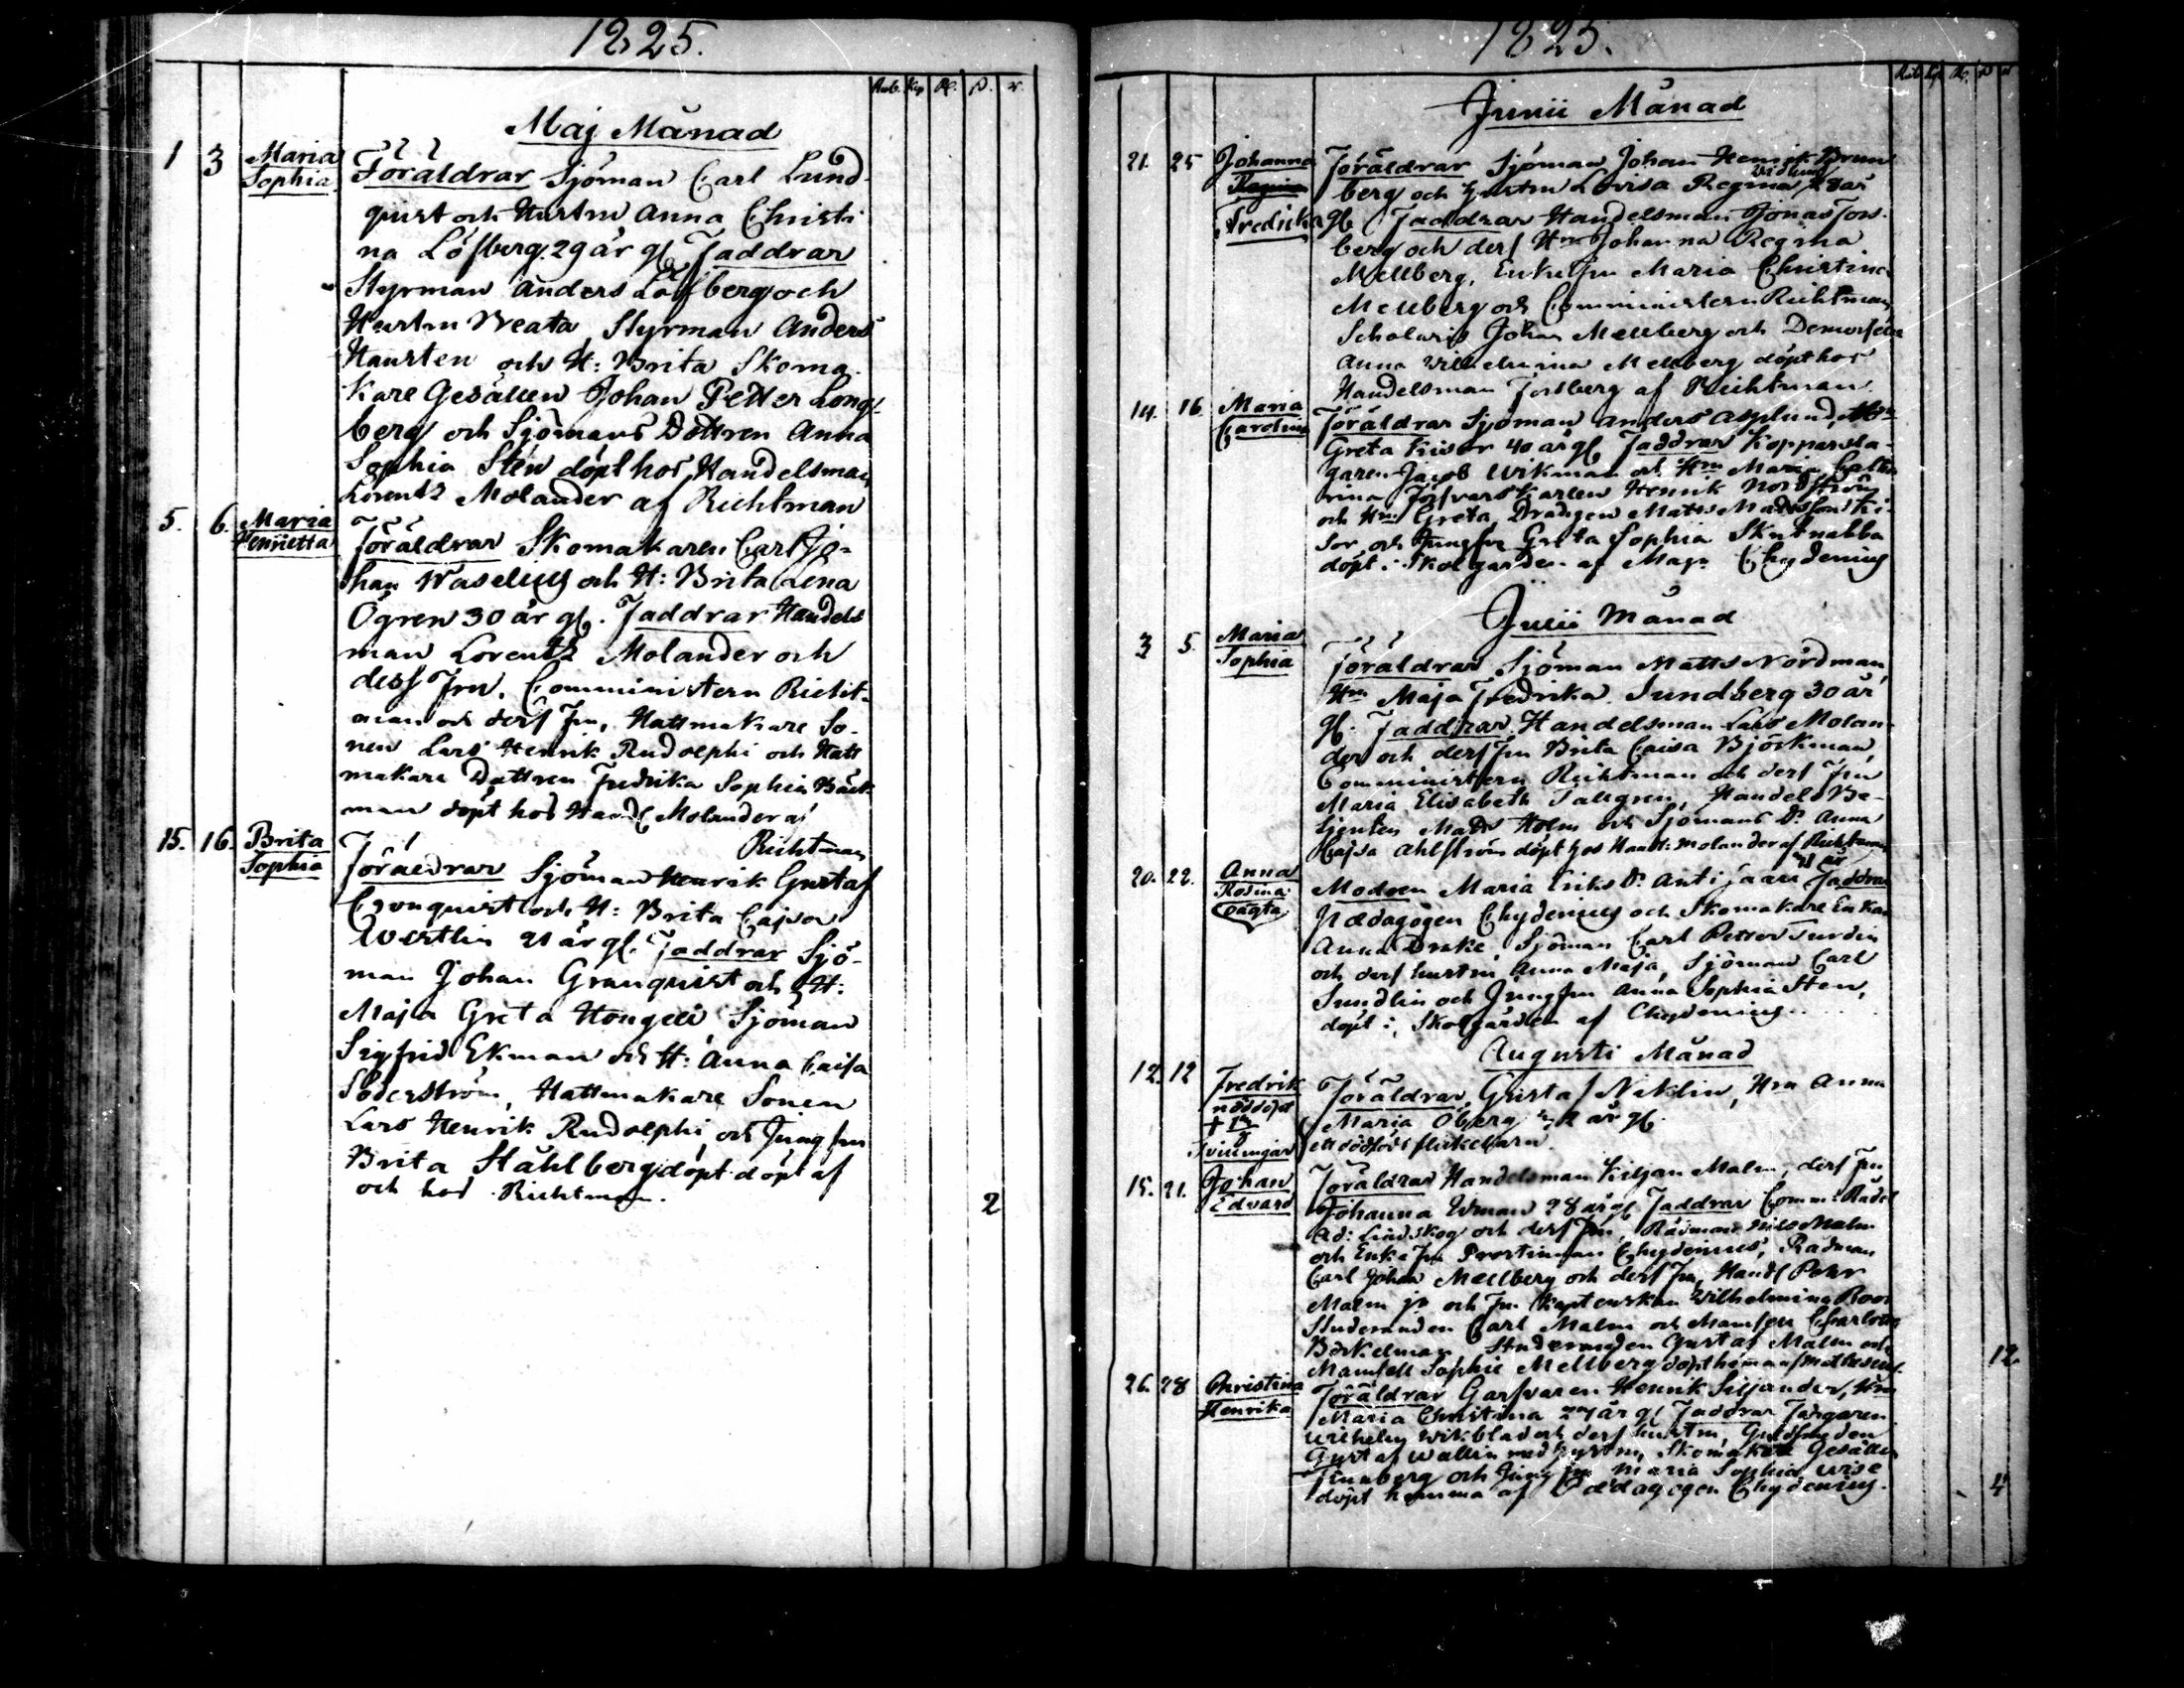 1825.
Rub. Kop R. S. r.
Maj Månad
1 3 Maria Föräldrar Sjöman Carl Lund-
Sophia quist och Hustru Anna Christi
na Löfberg 29 år gl. Faddrar
Styrman Anders Löfberg och
Hustru Beata, Styrman Anders
och H: Brita Skoma-
kare Gesällen Johan Petter Long-
berg och Sjömans Dottren Anna
Sophia Sten döpt hos Handelsman
Lorentz Molander af Richtman
5. 6. Maria Föräldrar Skomakaren Carl Jo-
Henrietta han Waselius och H: Brita Lena
Ögren 30 år gl. Faddrar Handels
man Lorentz Molander och
dess Fru. Comministern Richt-
man och dess Fru, Hattmakare So-
nen Lars Henrik Rudolphi och Hatt
makare Dottren Fredrika Sophia Bäck
man döpt hos Handl Molander af
Richtman
15. 16. Brita Föräldrar Sjöman Henrik Gustaf
Sophia Cronquist och H: Brita Cajsa
Westlin 21 år gl. Faddrar Sjö-
man Johan Granquist och H:
Maja Greta Hongell, Sjöman
Sigfrid Ekman och H: Anna Caisa
Söderström, Hattmakare Sonen
Lars Henrik Rudolphi, och Jungfru
Brita Ståhlberg döpt döpt af
och hos Richtman.
2
1825.
Rub Kp R. S r
Junii Månad
21. 25 Johanna Föräldrar Sjöman Johan Henrik Brun
Regina berg och Hustru Lovisa Regina 28 år
Fredrika gl. Faddrar Handelsman Jonas Fors-
berg och dess Hru Johanna Regina
Mellberg, Enkefru Maria Christina
Mellberg och Comministern Richtman,
Scholaris Johan Mellberg och Demoiselle
Anna Wilhelmina Mellberg döpt hos
Handelsman Forsberg af Richtman.
14. 16. Maria Föräldrar Sjöman Anders Asplund, Hru
Carolina Greta Kisor 40 år gl Faddrar Kopparsla-
garen Jacob Wikman och Hru Maria Catha
rina Henrik Nordström
och Hru Greta, Drängen Matts Mattsson Ki-
sor och Jungfru Greta Sophia Skutnabba
döpt i Skolgården af Mag: Chydenius
Julii Månad
3 5. Maria Föräldrar Sjöman Matts Nordman,
Sophia Hru Maja Fredrika Sundberg 30 år
gl. Faddrar Handelsman Lars Molan-
der och dess fru Brita Caisa Björkman
Comministern Richtman och dess Fru
Maria Elisabeth Tallgren, Handels Be-
tjenten Matts Holm och Sjömans D: Anna
Cajsa Ahlström döpt hos Hand: Molander af Richtman
20. 22. Anna Modren Maria Eriks D: Antijaari 21 år Faddrar
Rosina Pædagogen Chydenius och Skomakare Enkan
oägta Anna Drake, Sjöman Carl Petter Turdin
och dess hustru Anna Maja, Sjöman Carl
Sundlin och Jungfru Anna Sophia Sten,
döpt i Skolgården af Chydenius.
Augusti Månad
12. 12 Fredrik Föräldrar, Gustaf Neklin, Hru Anna
nöddöpt Maria Öberg år gl.
Tvillingar ett dödfödt flickebarn.
15. 21. Johan Föräldrar Handelsman Kiljan Malm, dess fru
Edvard Johanna Uman 28 år gl Faddrar Comm: Rådet
Ad: Lindskog och dess Fru, Rådman Nils Malm
och Enke Fru Prostinnan Chydenius, Rådman
Carl Johan Mellberg och dess Fru, Handl Pehr
Malm jr och Fru Kaptenskan Wilhelmina Roos
Studeranden Carl Malm och Mamsell Charlotta
Studeranden Gustaf Malm och
Mamsell Sophie Mellberg döpt hemma af
12.
26. 28 Christina Föräldrar Garfvaren Henrik Siljander, Hru
Henrika Maria Christina år gl Faddrar Färgaren
Wilhelm Wikblad och dess hustru, Guldsmeden
Gustaf Wallin med hustru, Skomakare Gesällen
och Jungfru Maria Sophia Wise
döpt hemma af Pædagogen Chydenius.
4